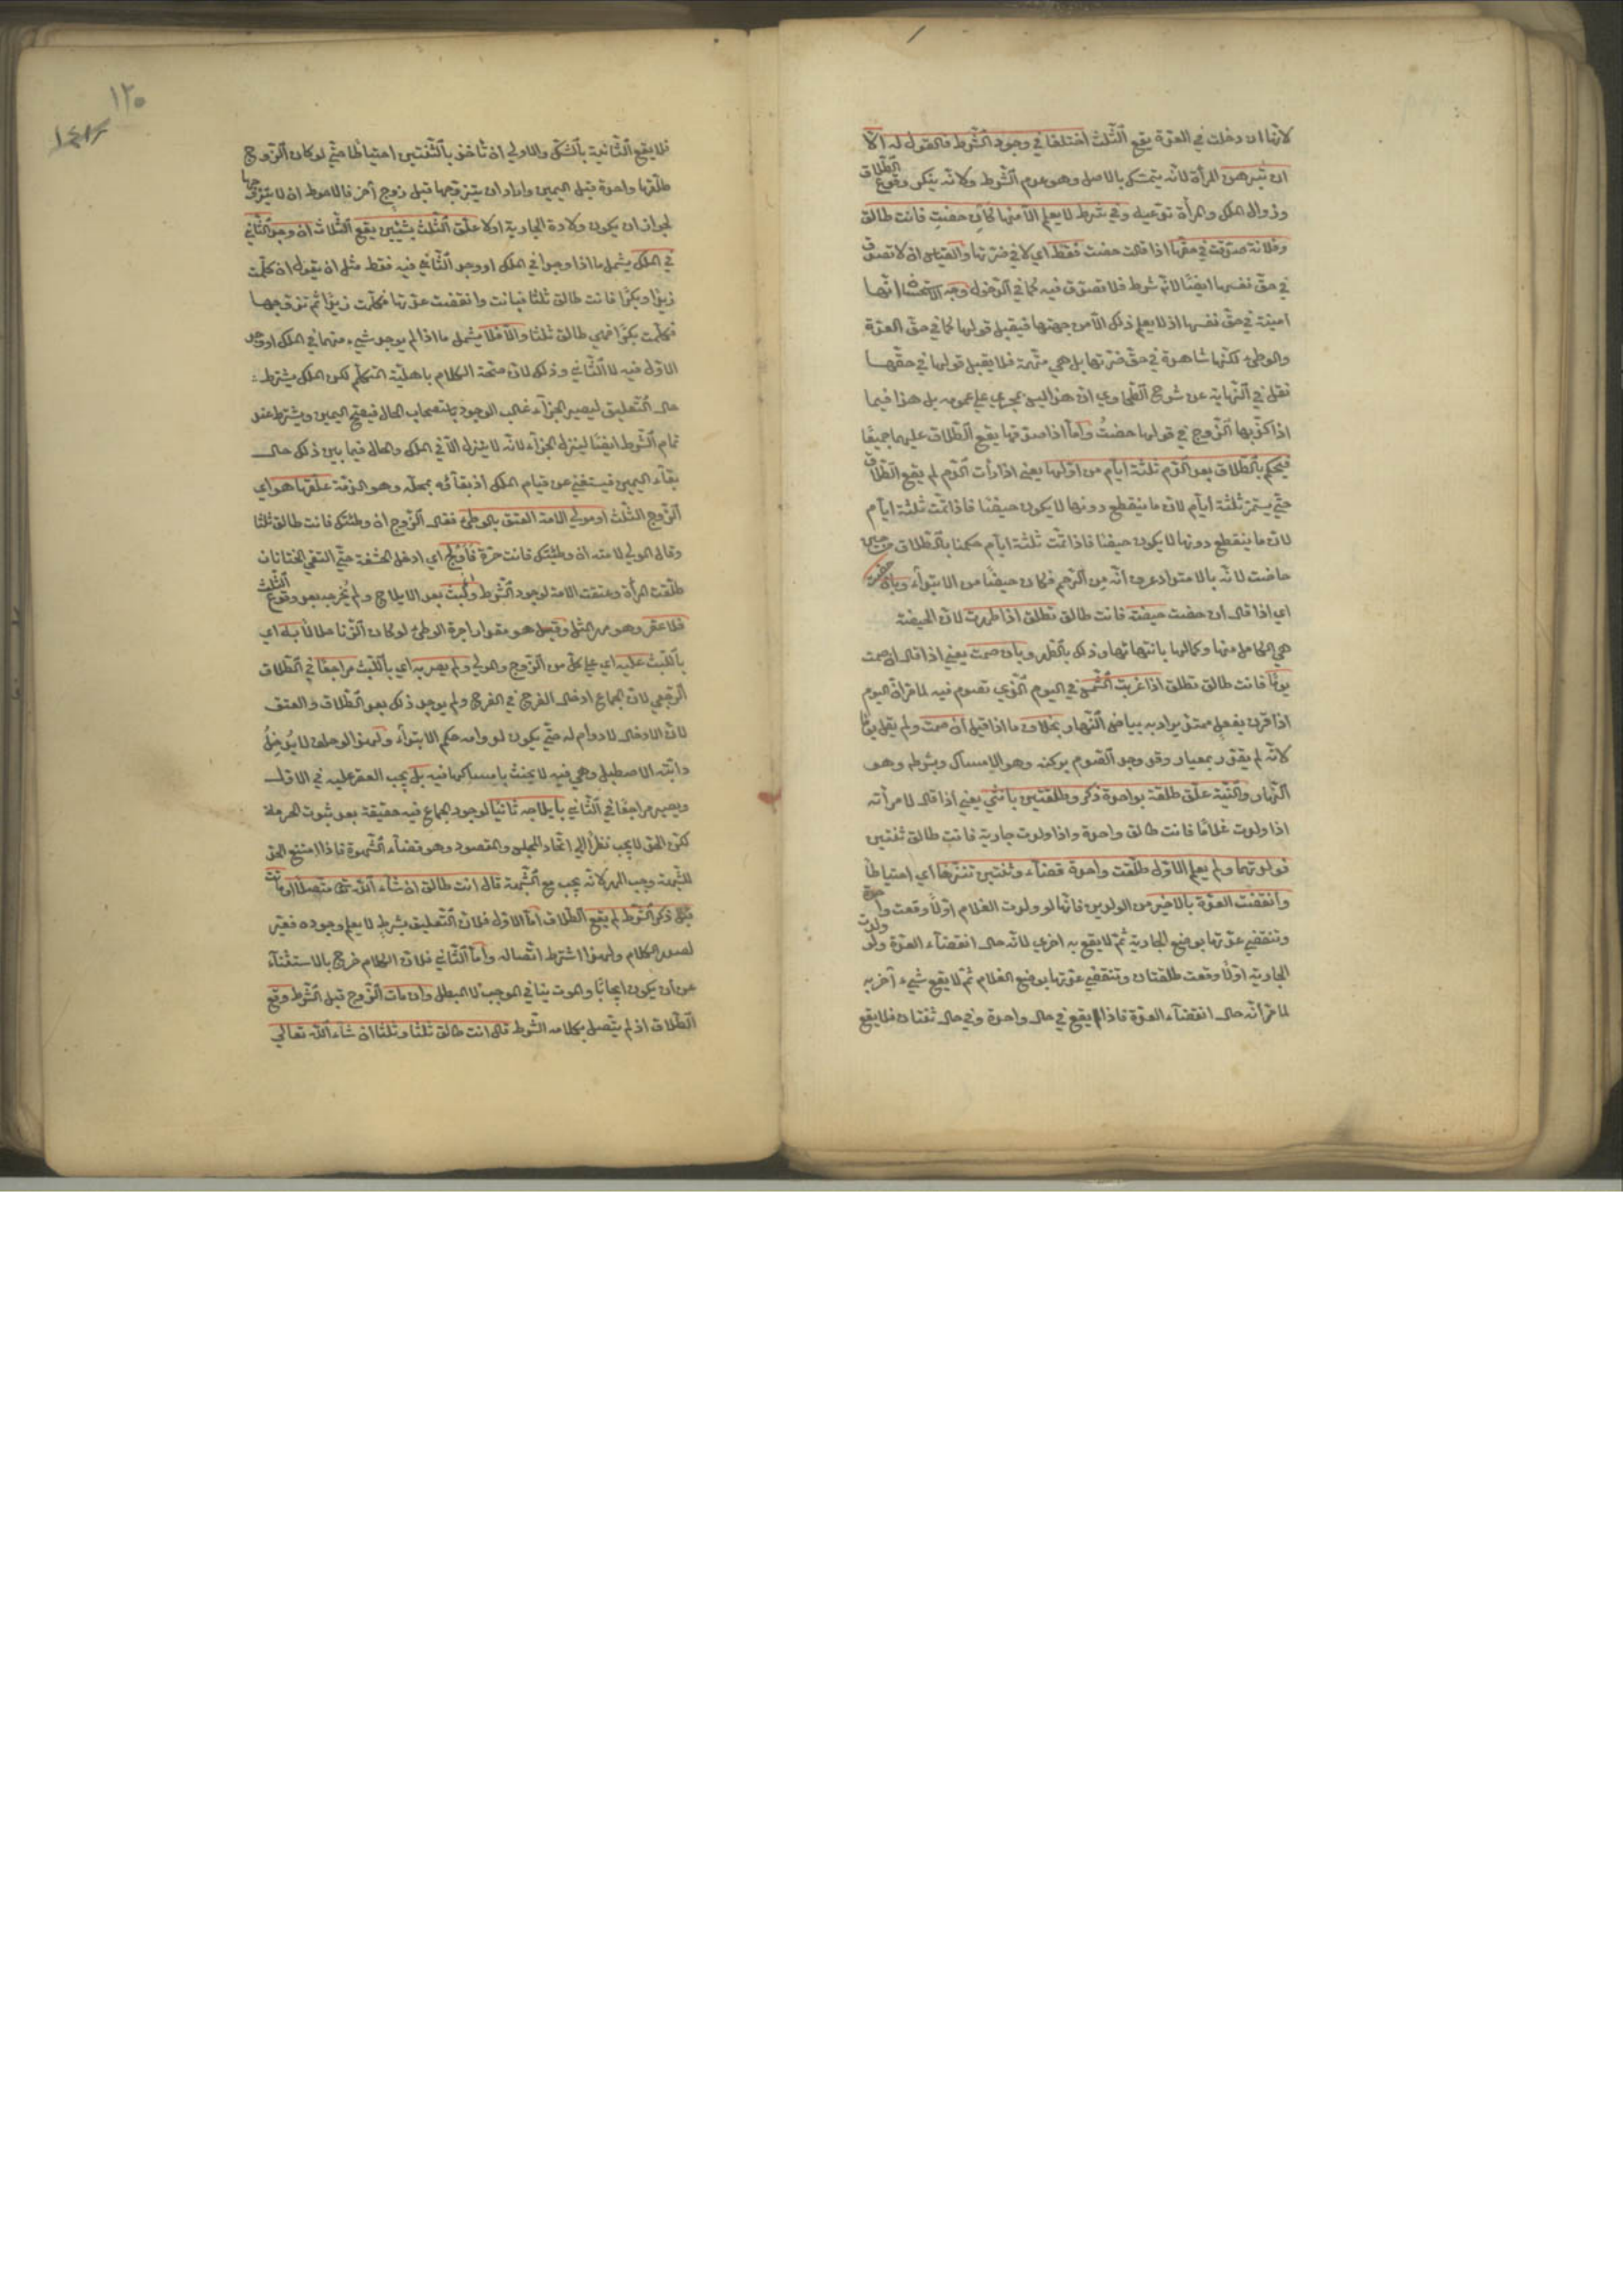 لانها ان دخلت في العدة يقع الثلث اختلفا في وجود الشرط فالقول له الا
ان تبرهن المرأة لانه يتمسك بالاصل وهو عدم الشرط ولانه ينكر وقوع الطلاق
وزوال الملك والمرأة تدعيه وفي شرط لا يعلم الا منها كان حضت فانت طالق
وفلانة صدقت في حقها اذا قالت حضت فقط اي لا في ضرتها والقياس ان لا تصدق
في حق نفسها ايضا لانه شرط فلا تصدق فيه كما في الدخول وجه الاستحسان انها
امينة في حق نفسها اذ لا يعلم ذلك الا من جهتها فيقبل قولها كما في حق العدة
والوطئ لكنها شاهدة في حق ضرتها بل هي متهمة فلا يقبل قولها في حقها
نقل في النهاية عن شرح الطحاوي ان هذا ليس بمجري علي عمومه بل هذا فيما
اذا كذبها الزوج في قولها حضت واما اذا صدقها يقع الطلاق عليهما جميعا
فيحكم بالطلاق بعد الدم ثلثة ايام من اولها يعني اذا رأت الدم لم يقع الطلاق
حتي يستمر ثلثة ايام لان ما ينقطع دونها لا يكون حيضا فاذا تمت ثلثة ايام
لان ما ينقطع دونها لا يكون حيضا فاذا تمت ثلثة ايام حكمنا بالطلاق من حين
حاضت لانه بالامتداد عرف انه من الرحم فكان حيضا من الابتداء وبان حضت
اي اذا قال ان حضت حيضة فانت طالق تطلق اذا طهرت لان الحيضة
هي الكامل منها وكمالها بانتهائها وذلك بالطهر وبان صمت يعني اذا قال ان صمت
يوما فانت طالق تطلق اذا غربت الشمس في اليوم الذي تصوم فيه لما مر ان اليوم
اذا قرن بفعل ممتد يراد به بياض النهار بخلاف ما اذا قيل ان صمت ولم يقل يوما
لانه لم يقدر بمعيار وقد وجد الصوم بركنه وهو الامساك وبشرطه وهو
النهار والنية علق طلقة بواحدة ذكر وطلقتين بانثي يعني اذا قال لامرأته
اذا ولدت غلاما فانت طالق واحدة واذا ولدت جارية فانت طالق ثنتين
فولدتهما ولم يعلم الاول طلقت واحدة قضاء وثنتين تنزها اي احتياطا
وانقضت العدة بالاخير من الولدين فانها لو ولدت الغلام اولا وقعت واحدة
وتنقضي عدتها بوضع الجارية ثم لا يقع به اخري لانه حال انقضاء العدة ولو ولدت
الجارية اولا وقعت طلقتان وتنقضي عدتها بوضع الغلام ثم لا يقع شيء اخر به
لما مر انه حال انقضاء العدة فاذا يقع في حال واحدة وفي حال ثنتان فلا يقع
١٢٠
فلا يقع الثانية بالشك والاولي ان تأخذ بالثنتين احتياطا حتي لو كان الزوج
طلقها واحدة قبل اليمين واراد ان يتزوجها قبل زوج آخر فالاحوط ان لا يتزوجها
لجواز ان يكون ولادة الجارية اولا علق الثلث بشيئين يقع الثلاث ان وجد الثاني
في الملك يشمل ما اذا وجدا في الملك او وجد الثاني فيه فقط مثل ان يقول ان كلمت
زيدا وبكرا فانت طالق ثلثا فبانت وانقضت عدتها فكلمت زيدا ثم تزوجها
فكلمت بكرا فهي طالق ثلثا والا فلا يشمل ما اذا لم يوجد شيء منهما في الملك او وجد
الاول فيه لا الثاني وذلك لان صحة الكلام باهلية المتكلم لكن الملك يشترط
حال التعليق ليصير الجزاء غالب الوجود باستصحاب الحال فيصح اليمين ويشترط عند
تمام الشرط ايضا لينزل الجزاء لانه لا ينزل الا في الملك والحال فيما بين ذلك حال
بقاء اليمين فيستغني عن قيام الملك اذ بقاؤه بمحله وهو الذمة علقها هو اي
الزوج الثلث او مولي الامة العتق بالوطئ فقال الزوج ان وطئتك فانت طالق ثلثا
وقال المولي لامته ان وطئتك فانت حرة فاولج اي ادخل الحشفة حتي التقي الختانان
طلقت المرأة وعتقت الامة لوجود الشرط ولبث بعد الايلاج ولم يخرجه بعد وقوع الثلث
فلا عقر وهو مهر المثل وقيل هو مقدار اجرة الوطئ لو كان الزنا حلالا به اي
باللبث عليه اي علي كل من الزوج والمولي ولم يصر به اي باللبث مراجعا في الطلاق
الرجعي لان الجماع ادخال الفرج في الفرج ولم يوجد ذلك بعد الطلاق والعتق
لان الادخال لا دوام له حتي يكون لدوامه حكم الابتداء ولهذا لو حلف لا يدخل
دابته الاصطبل وهي فيه لا يحنث بامساكها فيه بل يجب العقر عليه في الاول
ويصير مراجعا في الثاني بايلاجه ثانيا لوجود الجماع فيه حقيقة بعد ثبوت الحرمة
لكن الحد لا يجب نظرا الي اتحاد المجلس والمقصود وهو قضاء الشهوة فاذا امتنع الحد
للشبهة وجب المهر لانه يجب مع الشبهة قال انت طالق ان شاء الله تع متصلا او ماتت
قبل ذكر الشرط لم يقع الطلاق اما الاول فلان التعليق بشرط لا يعلم وجوده مغير
لصدر الكلام ولهذا اشترط اتصاله واما الثاني فلان الكلام خرج بالاستثناء
عن ان يكون ايجابا والموت ينافي الموجب لا المبطل وان مات الزوج قبل الشرط وقع
الطلاق اذ لم يتصل بكلامه الشرط قال انت طالق ثلثا وثلثا ان شاء الله تعالي